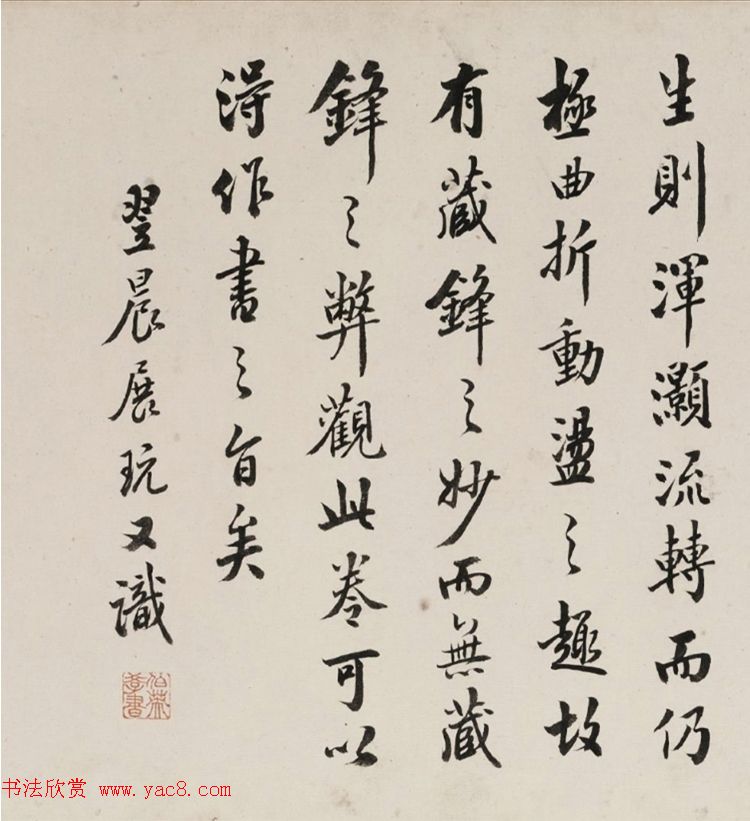 生則渾灝流轉而仍
極曲折動盪之趣故
有藏鋒之妙而無藏
鋒之弊觀此卷可以
得作書之旨矣
翌晨展玩又識
书法欣赏 www.yac8.com